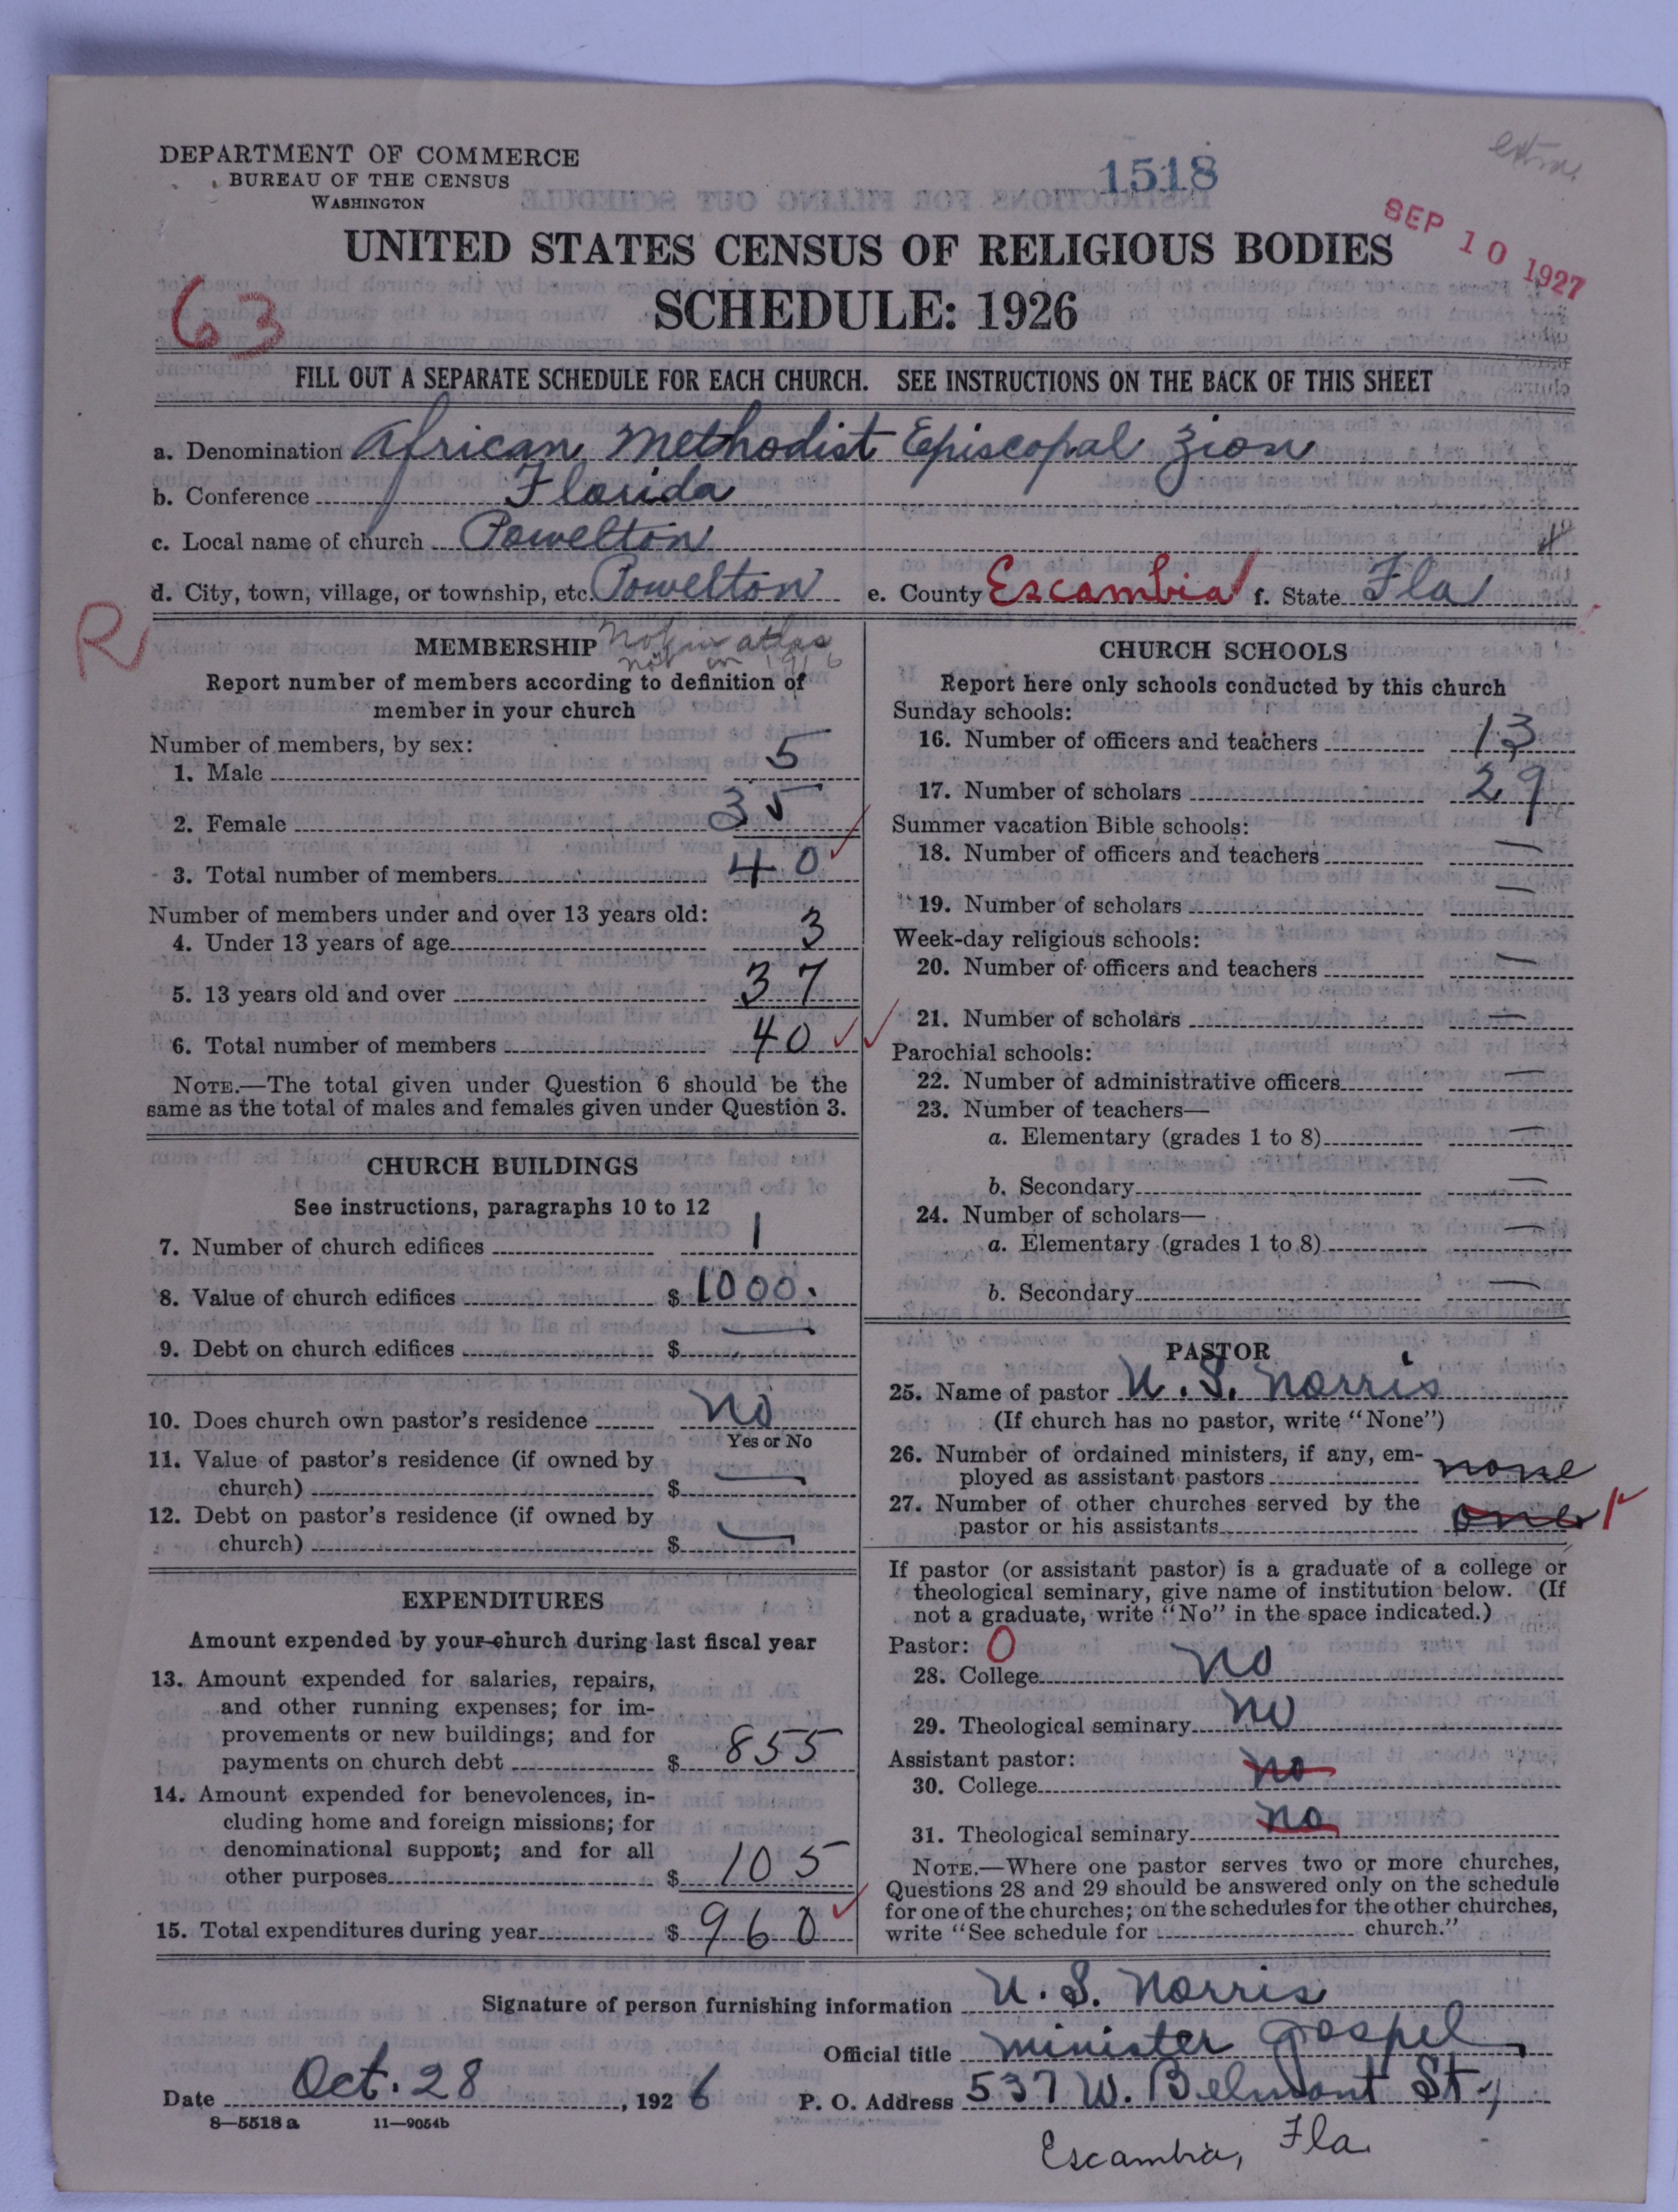 DEPARTMENT OF COMMERCE
BUREAU OF THE CENSUS
WASHINGTON
1518
SEP 10 1927
UNITED STATES CENSUS OF RELIGIOUS BODIES
SCHEDULE: 1926
63
FILL OUT A SEPARATE SCHEDULE FOR EACH CHURCH. SEE INSTRUCTIONS ON THE BACK OF THIS SHEET
a. Denomination African Methodist Episcopal Zion
b. Conference Florida
c. Local name of church Powelton
d. City, town, village, or township, etc. Powelton e. County Escambia f. State Fla
R
MEMBERSHIP Not in atlas
not in 1916
Report number of members according to definition of
member in your church
Number of members, by sex:
1. Male 5
2. Female 35
3. Total number of members 40
Number of members under and over 13 years old:
4. Under 13 years of age 3
5. 13 years old and over 37
6. Total number of members 40
NOTE.—The total given under Question 6 should be the
same as the total of males and females given under Question 3.
CHURCH BUILDINGS
See instructions, paragraphs 10 to 12
7. Number of church edifices 1
8. Value of church edifices $ 1000.
9. Debt on church edifices $ —
10. Does church own pastor's residence No
Yes or No
11. Value of pastor's residence (if owned by
church) $ —
12. Debt on pastor's residence (if owned by
church) $ —
EXPENDITURES
Amount expended by your church during last fiscal year
13. Amount expended for salaries, repairs,
and other running expenses; for im-
provements or new buildings; and for
payments on church debt $ 855
14. Amount expended for benevolences, in-
cluding home and foreign missions; for
denominational support; and for all
other purposes $ 105
15. Total expenditures during year $ 960
CHURCH SCHOOLS
Report here only schools conducted by this church
Sunday schools:
16. Number of officers and teachers 13
17. Number of scholars 29
Summer vacation Bible schools:
18. Number of officers and teachers —
19. Number of scholars —
Week-day religious schools:
20. Number of officers and teachers —
21. Number of scholars —
Parochial schools:
22. Number of administrative officers —
23. Number of teachers—
a. Elementary (grades 1 to 8) —
b. Secondary —
24. Number of scholars—
a. Elementary (grades 1 to 8) —
b. Secondary —
PASTOR
25. Name of pastor U. S. Norris
(If church has no pastor, write "None")
26. Number of ordained ministers, if any, em-
ployed as assistant pastors none
27. Number of other churches served by the
pastor or his assistants one 1
If pastor (or assistant pastor) is a graduate of a college or
theological seminary, give name of institution below. (If
not a graduate, write "No" in the space indicated.)
Pastor: 0
28. College No
29. Theological seminary No
Assistant pastor:
30. College no
31. Theological seminary no
NOTE.—Where one pastor serves two or more churches,
Questions 28 and 29 should be answered only on the schedule
for one of the churches; on the schedules for the other churches,
write "See schedule for church."
Signature of person furnishing information U. S. Norris
Official title minister gospel
Date Oct. 28, 1926 P. O. Address 537 W. Belmont St,
8—5518 a 11—9054b
Escambia, Fla.